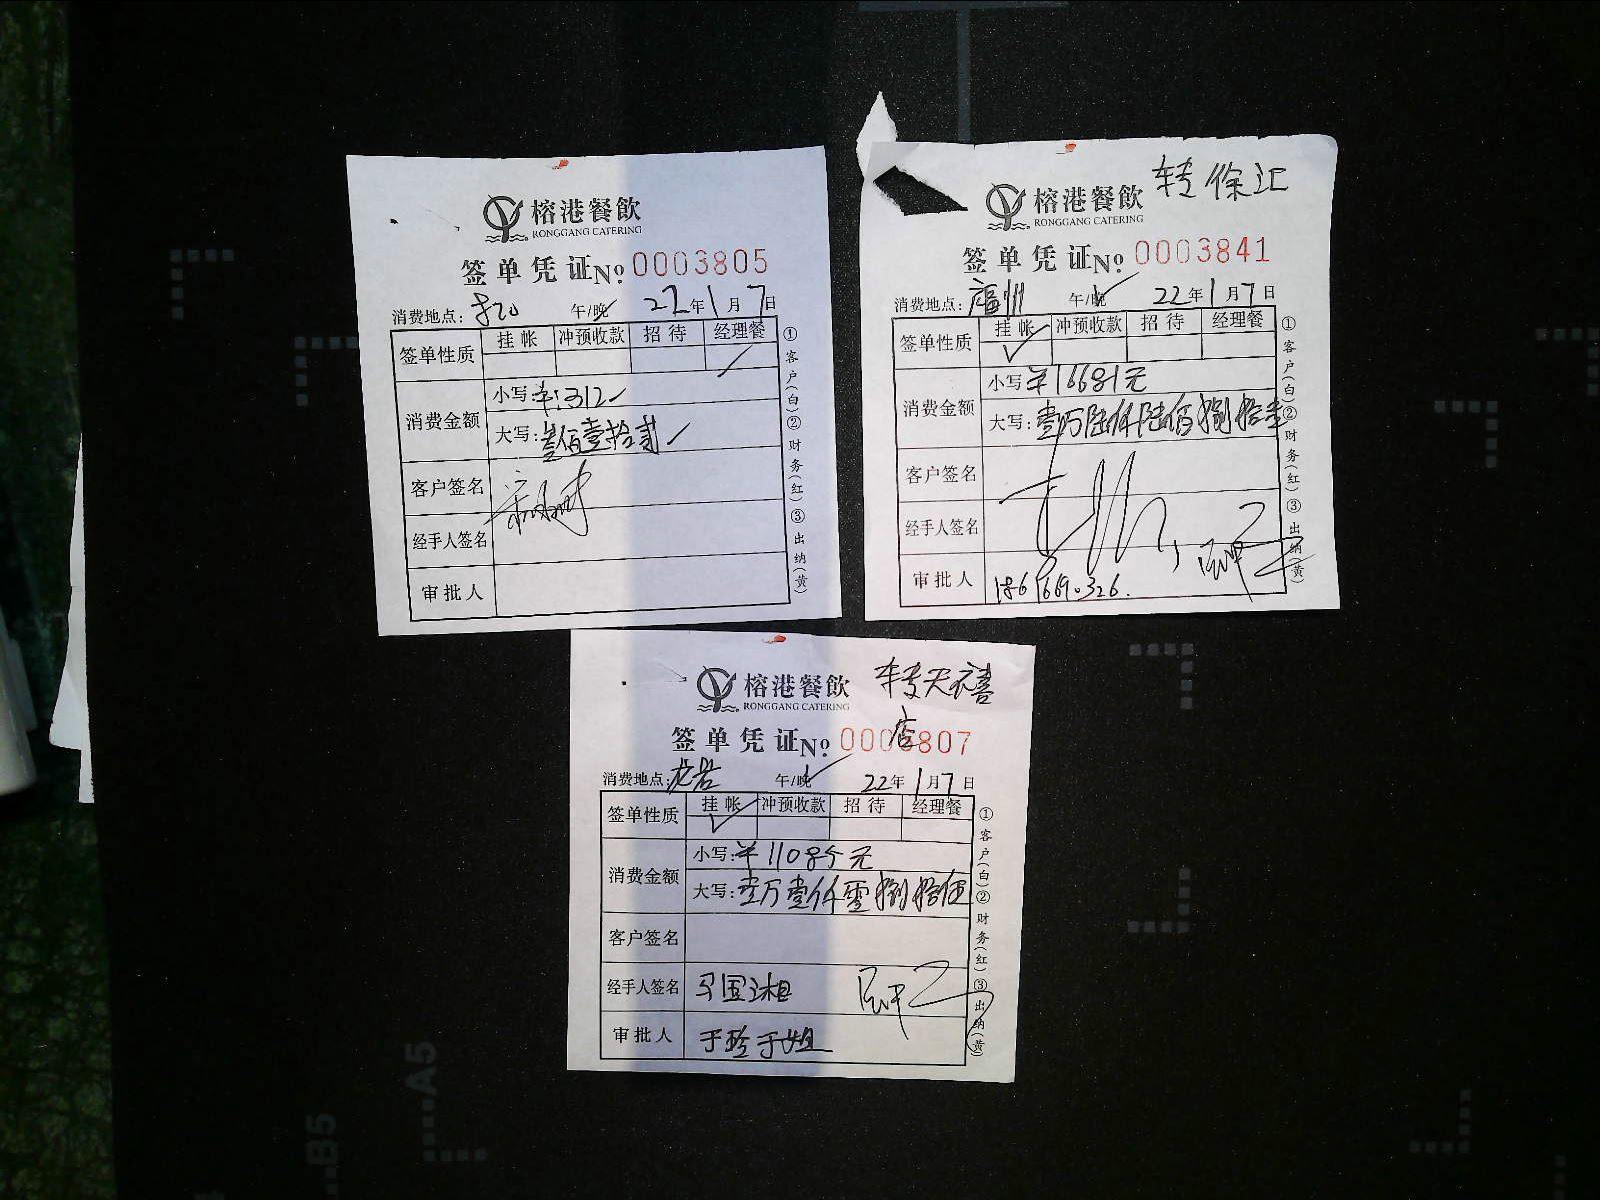 榕港餐飲
RONGGANG CATERING
签单凭证 No. 0003805
消费地点: 午/晚 22年1月7日
签单性质 挂帐 冲预收款 招待 经理餐
消费金额 小写:¥:312
大写:叁佰壹拾贰
客户签名
经手人签名
审批人
①客户(白)②财务(红)③出纳(黄)
转徐汇
榕港餐飲
RONGGANG CATERING
签单凭证 No. 0003841
消费地点:福州 午/晚 22年1月7日
签单性质 挂帐 冲预收款 招待 经理餐
消费金额 小写 ¥16681元
大写:壹万陆仟陆佰捌拾壹
客户签名
经手人签名
审批人
①客户(白)②财务(红)③出纳(黄)
转天禧
店
榕港餐飲
RONGGANG CATERING
签单凭证 No. 0003807
消费地点:龙岩 午/晚 22年1月7日
签单性质 挂帐 冲预收款 招待 经理餐
消费金额 小写:¥11085元
大写:壹万壹仟零捌拾伍
客户签名
经手人签名 马国湘
审批人 于玲于姐
①客户(白)②财务(红)③出纳(黄)
A5
B5